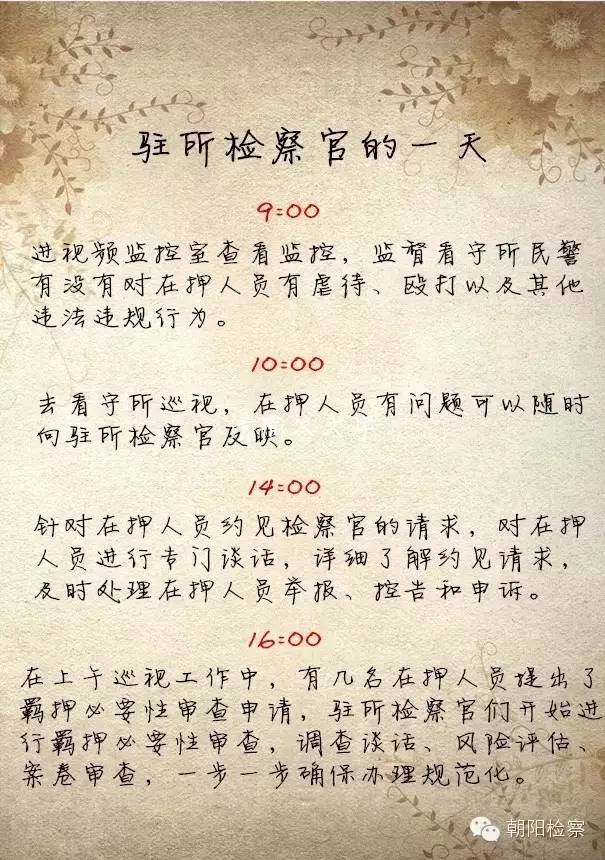 驻所检察官的一天
9:00
进视频监控室查看监控，监督看守所民警
有没有对在押人员有虐待、殴打以及其他
违法违规行为。
10:00
去看守所巡视，在押人员有问题可以随时
向驻所检察官反映。
14:00
针对在押人员约见检察官的请求，对在押
人员进行专门谈话，详细了解约见请求，
及时处理在押人员举报、控告和申诉。
16:00
在上午巡视工作中，有几名在押人员提出了
羁押必要性审查申请，驻所检察官们开始进
行羁押必要性审查，调查谈话、风险评估、
案卷审查，一步一步确保办理规范化。
朝阳检察